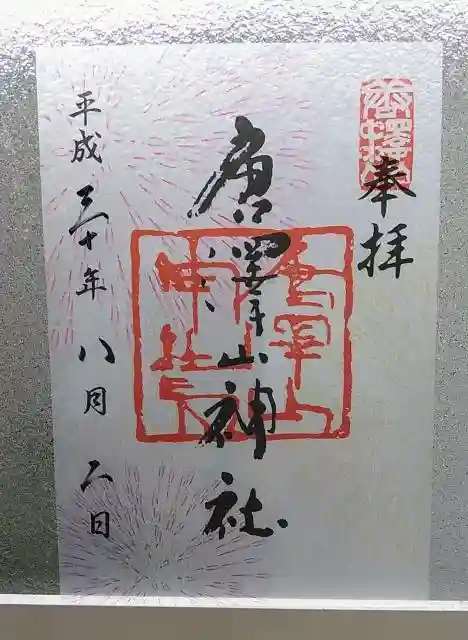 奉拝
唐澤山神社
平成三十年八月六日
唐澤山神社